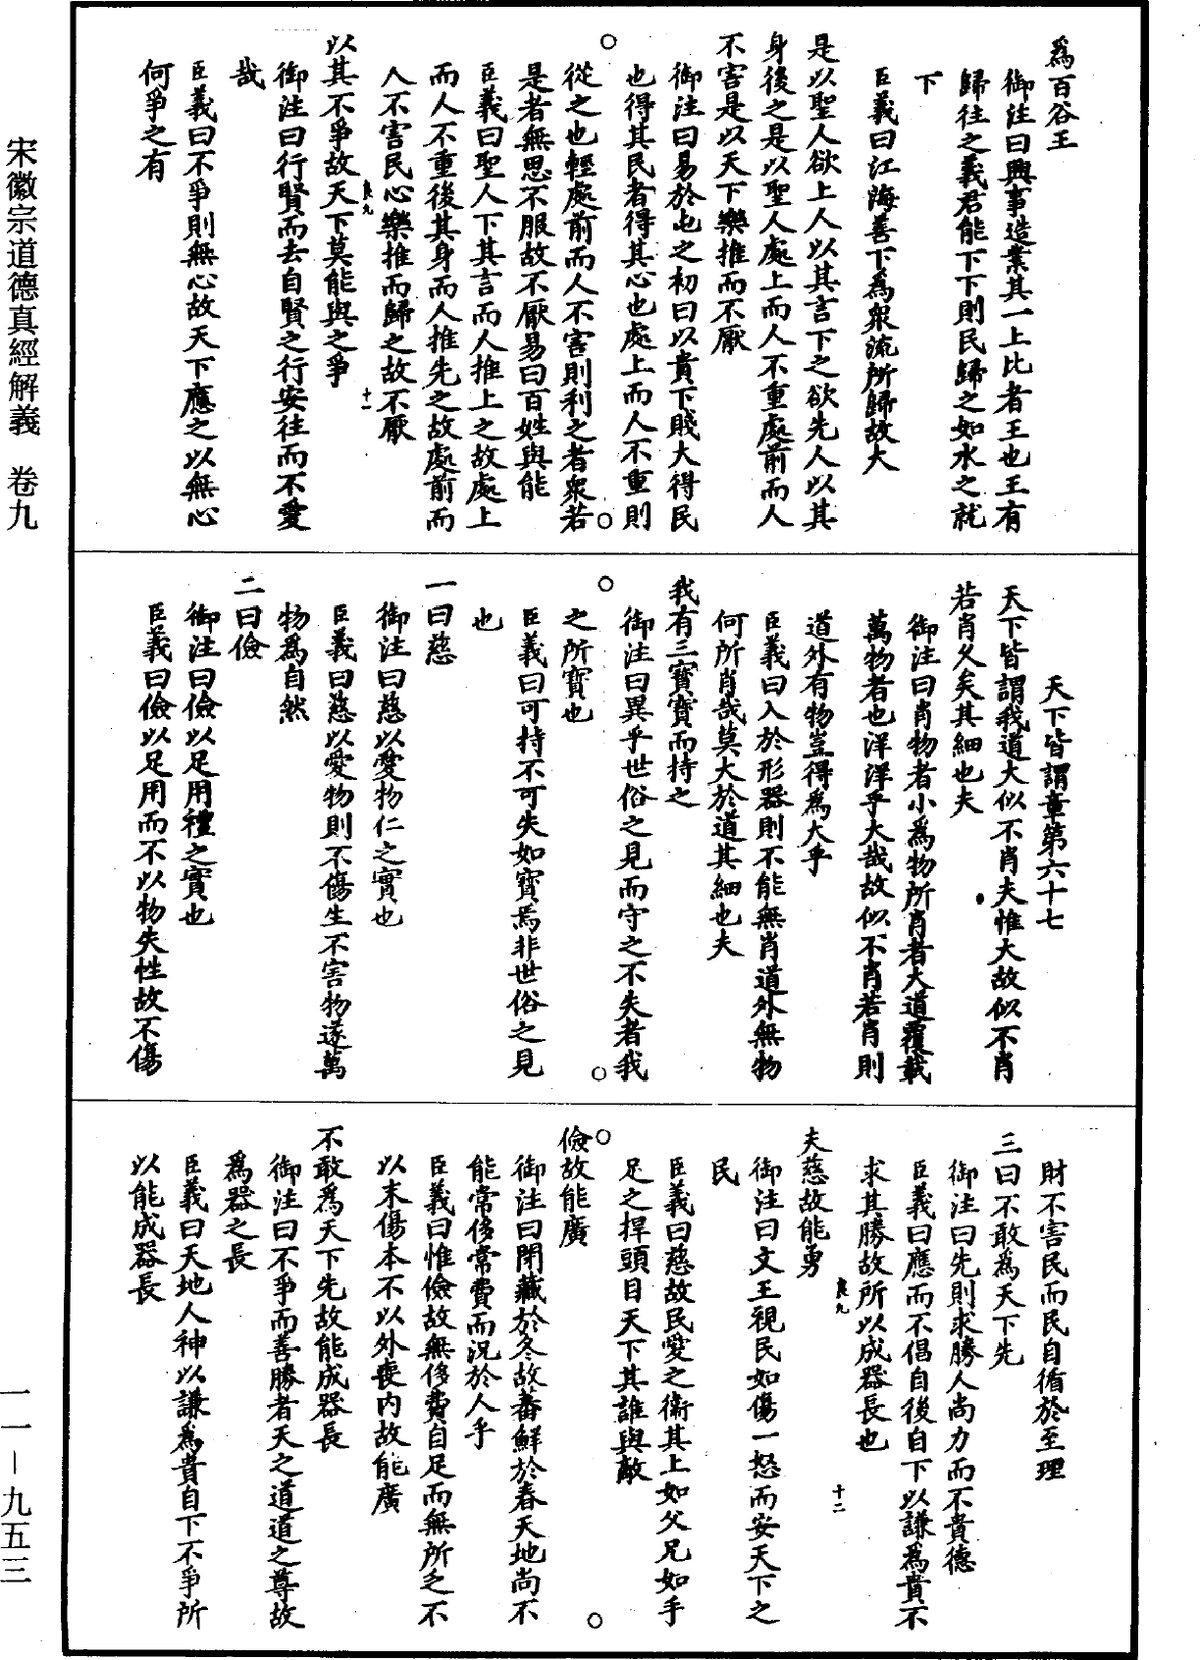 爲百谷王
御注曰興事造業其一上比者王也王有
歸往之義君能下下則民歸之如水之就
下
臣義曰江海善下爲衆流所歸故大
是以聖人欲上人以其言下之欲先人以其
身後之是以聖人處上而人不重處前而人
不害是以天下樂推而不厭
御注曰易於屯之初曰以貴下賤大得民
也得其民者得其心也處上而人不重則
從之也輕處前而人不害則利之者衆若
是者無思不服故不厭易曰百姓與能
臣義曰聖人下其言而人推上之故處上
而人不重後其身而人推先之故處前而
人不害民心樂推而歸之故不厭
良九
十一
以其不爭故天下莫能與之爭
御注曰行賢而去自賢之行安往而不愛
哉
臣義曰不爭則無心故天下應之以無心
何爭之有
天下皆謂章第六十七
天下皆謂我道大似不肖夫惟大故似不肖
若肖久矣其細也夫
御注曰肖物者小爲物所肖者大道覆載
萬物者也洋洋乎大哉故似不肖若肖則
道外有物豈得爲大乎
臣義曰入於形器則不能無肖道外無物
何所肖哉莫大於道其細也夫
我有三寶寶而持之
御注曰異乎世俗之見而守之不失者我
之所寶也
臣義曰可持不可失如寶焉非世俗之見
也
一曰慈
御注曰慈以愛物仁之實也
臣義曰慈以愛物則不傷生不害物遂萬
物爲自然
二曰儉
御注曰儉以足用禮之實也
臣義曰儉以足用而不以物失性故不傷
財不害民而民自循於至理
三曰不敢爲天下先
御注曰先則求勝人尚力而不貴德
臣義曰應而不倡自後自下以謙爲貴不
求其勝故所以成器長也
良九
十二
夫慈故能勇
御注曰文王視民如傷一怒而安天下之
民
臣義曰慈故民愛之衛其上如父兄如手
足之捍頭目天下其誰與敵
儉故能廣
御注曰閉藏於冬故蕃鮮於春天地尚不
能常侈常費而況於人乎
臣義曰惟儉故無侈費自足而無所乏不
以末傷本不以外喪內故能廣
不敢爲天下先故能成器長
御注曰不爭而善勝者天之道道之尊故
爲器之長
臣義曰天地人神以謙爲貴自下不爭所
以能成器長
宋徽宗道德真經解義　卷九
一一—九五三